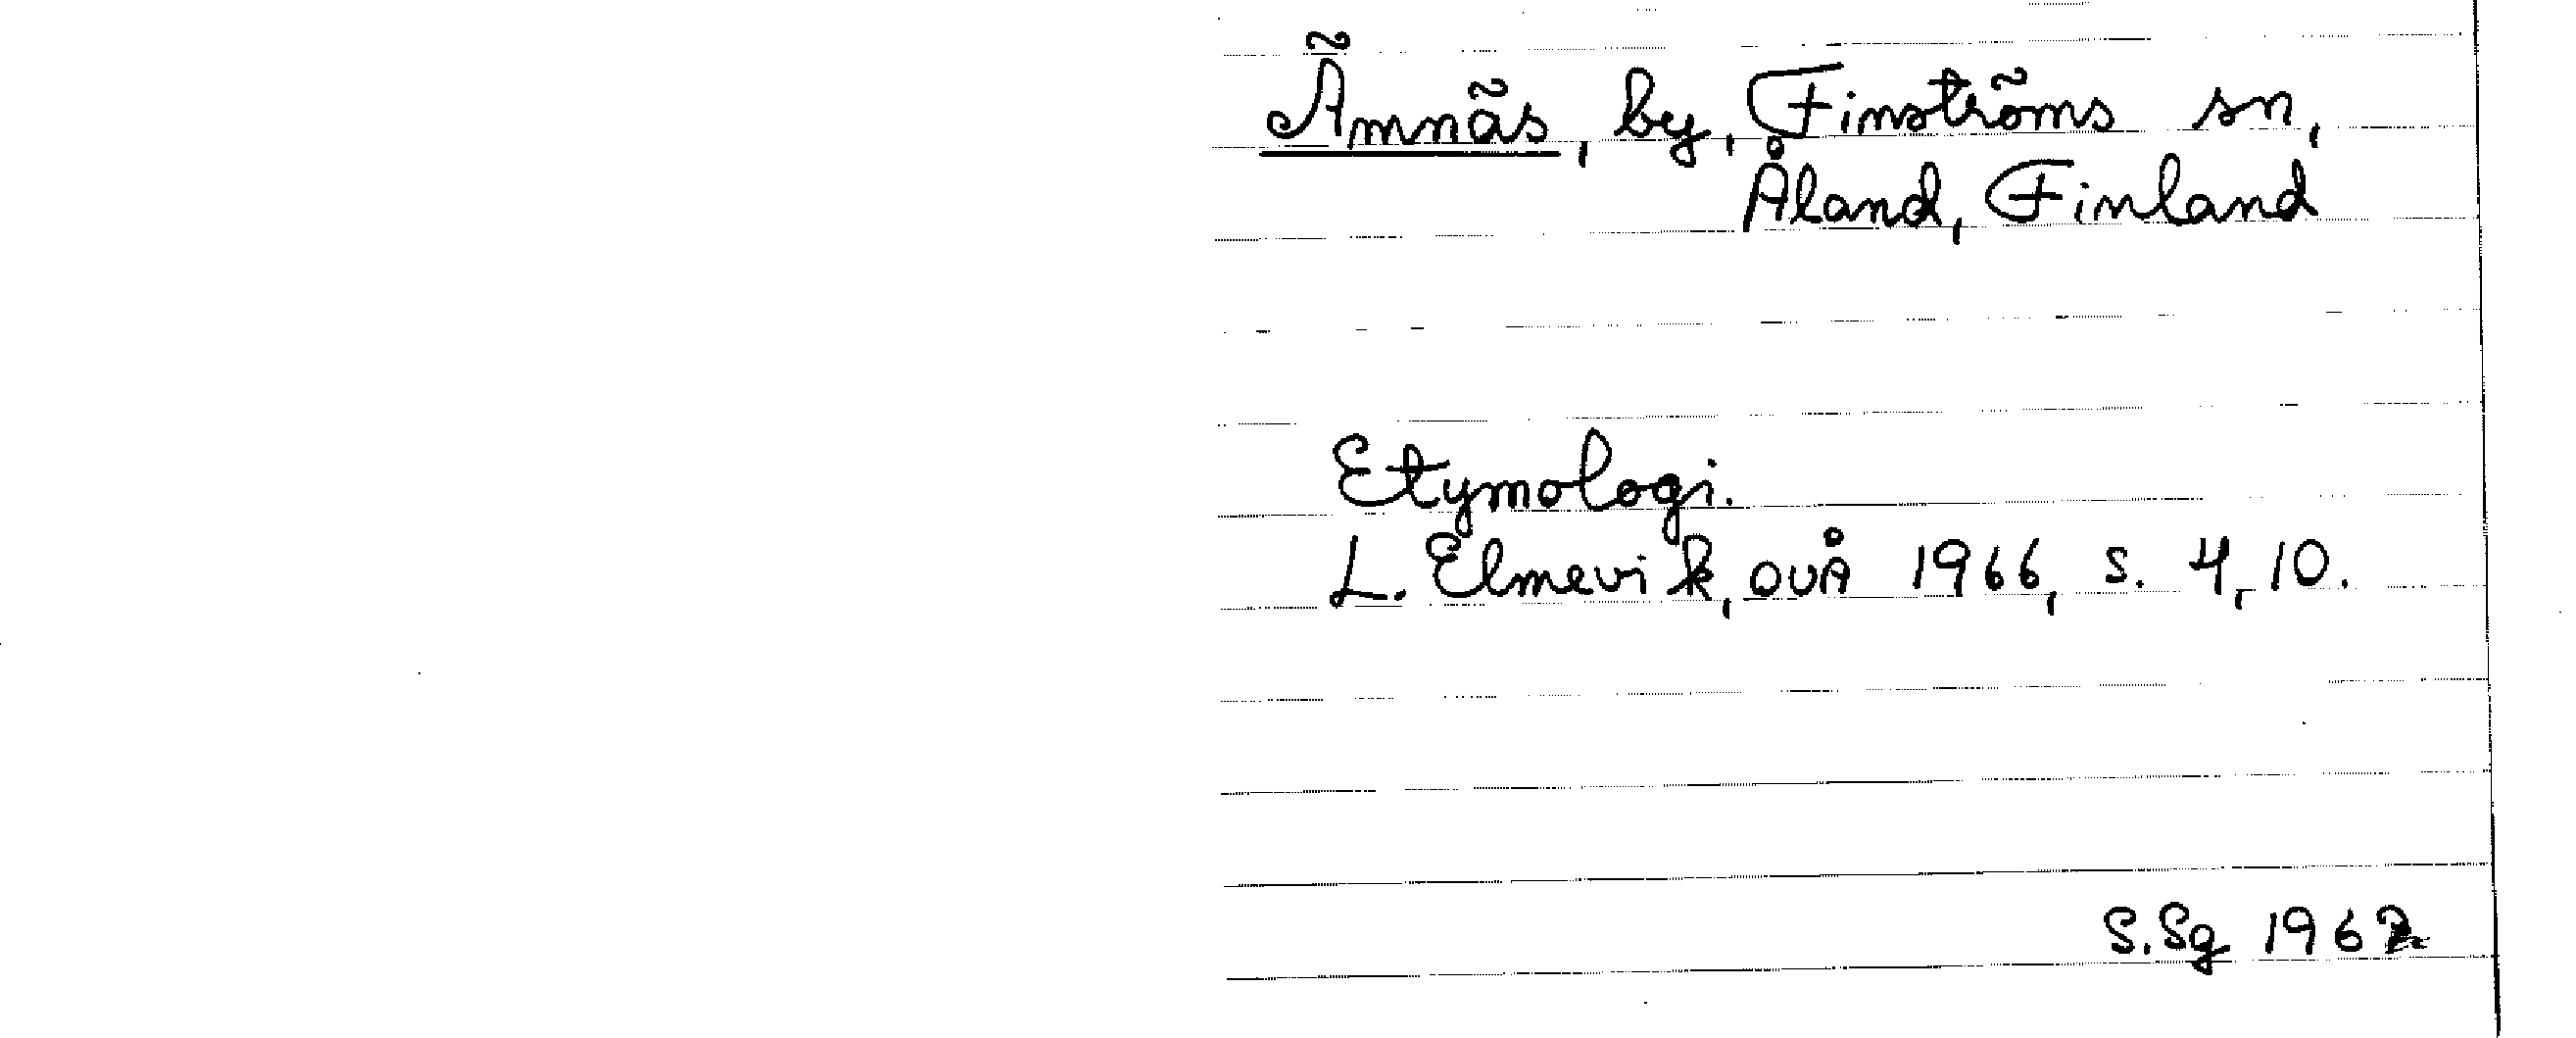 Ämnäs, by, Finströms sn,
Åland, Finland
Etymologi.
L. Elmevik, OUÅ 1966, s. 4, 10.
S. Sg